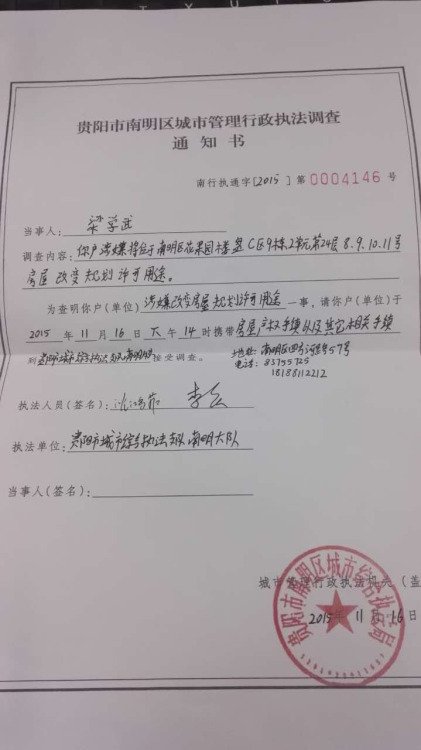 贵阳市南明区城市管理行政执法调查
通知书
南行执通字[2015]第0004146号
当事人：梁学武
调查内容：你户涉嫌将位于南明区花果园楼盘C区9栋2单元第24层8.9.10.11号
房屋改变规划许可用途。
为查明你户(单位)涉嫌改变房屋规划许可用途一事，请你户(单位)于
2015年11月16日下午14时携带房屋产权手续以及其它相关手续
到贵阳市城市综合执法支队南明大队接受调查。
地址：南明区四号河滨57号
电话：83755725
18188112212
执法人员(签名)：
执法单位：贵阳市城市综合执法支队南明大队
当事人(签名)：
城市管理行政执法机关(盖
贵阳市南明区城市综合执法局
2015年11月16日